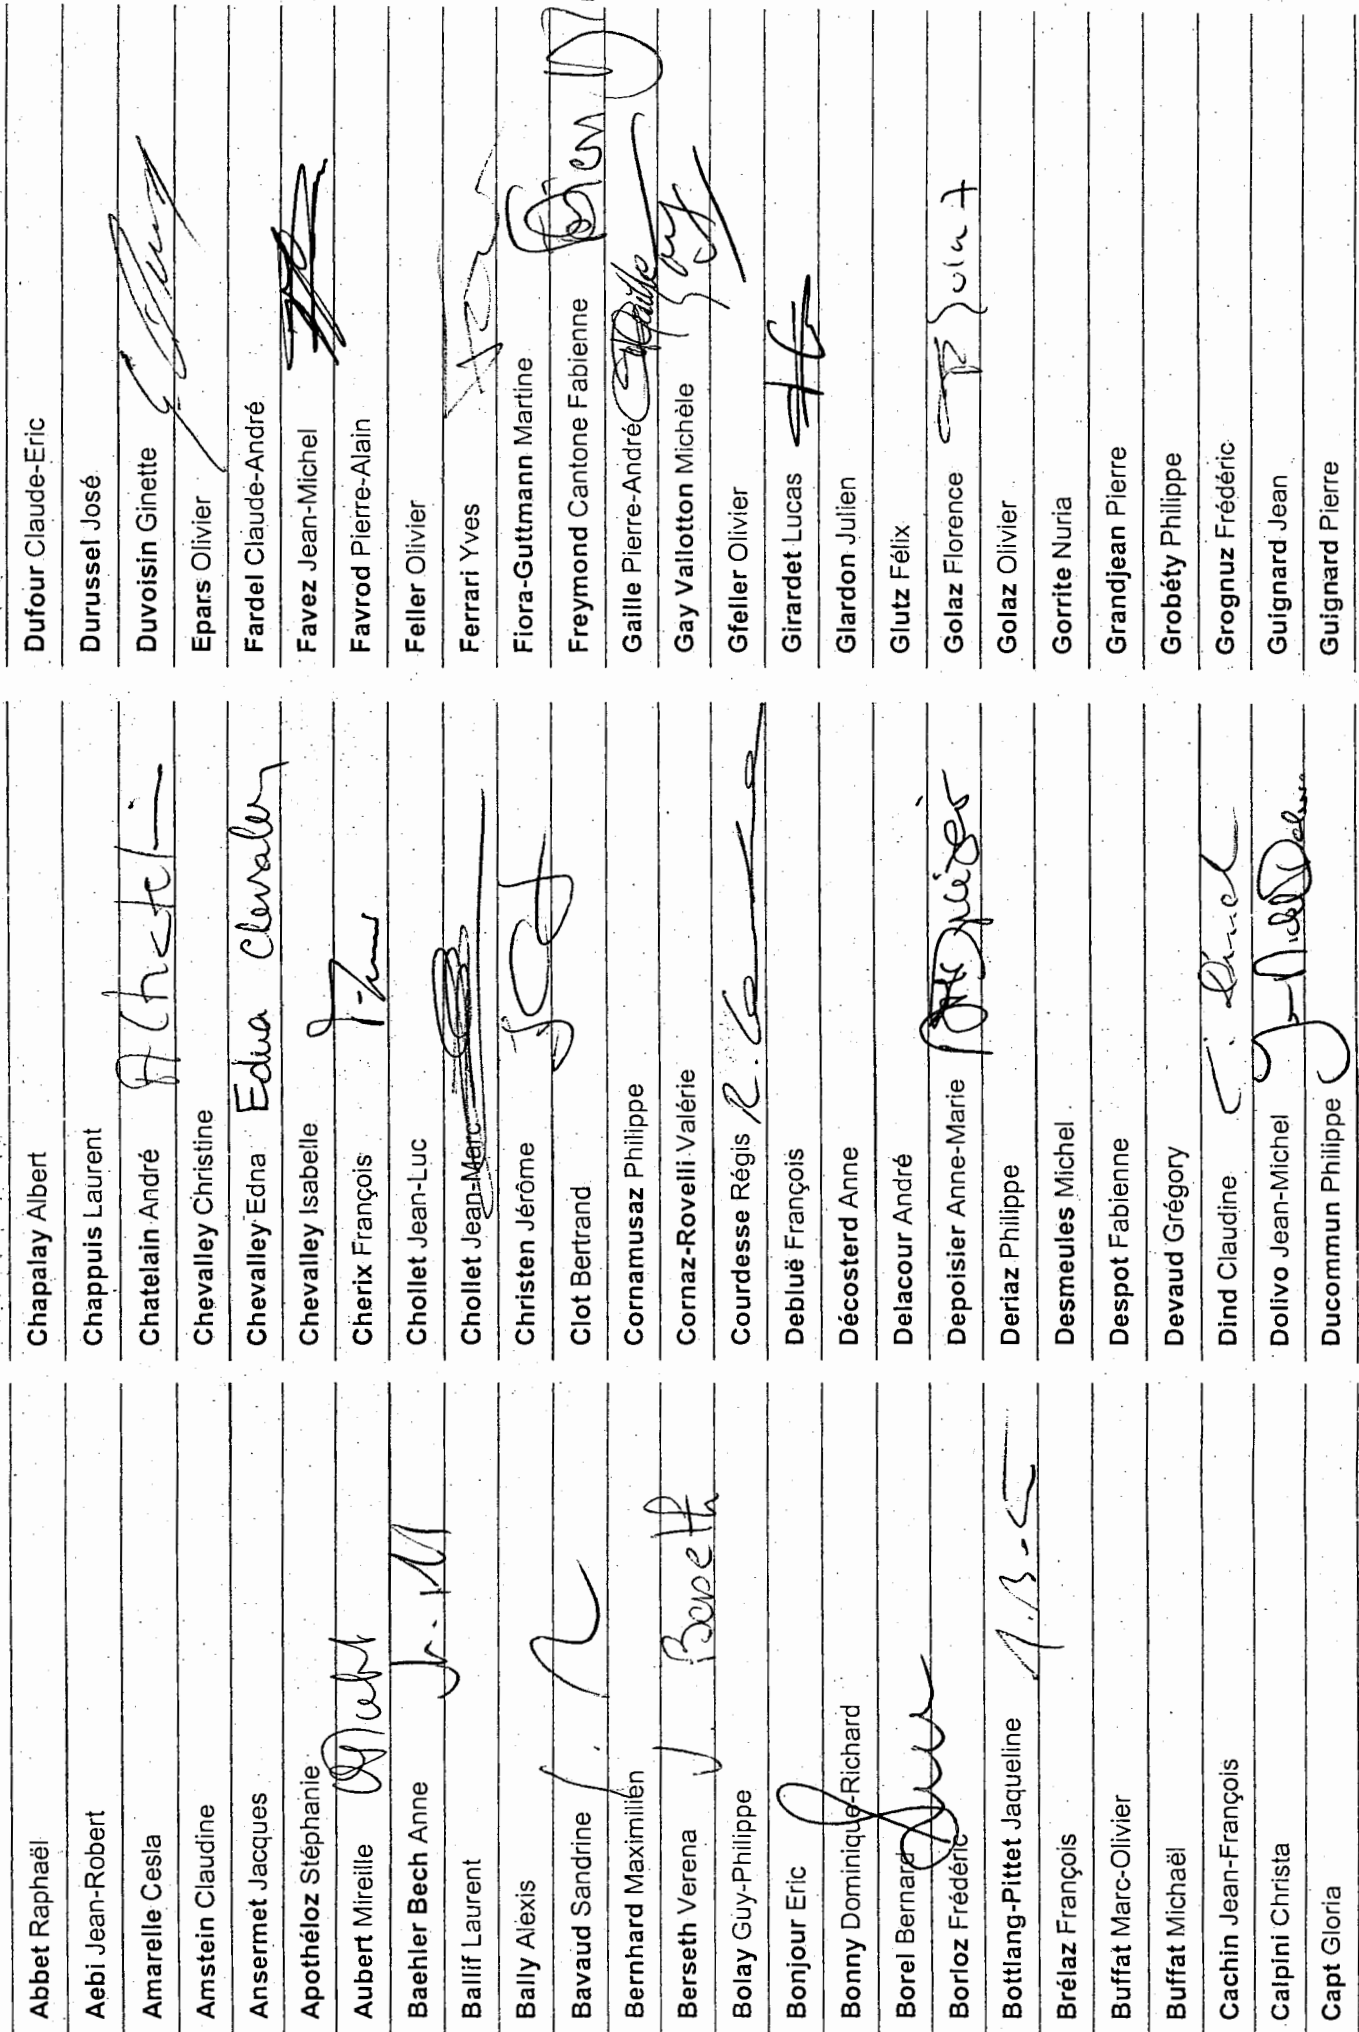 Abbet Raphaël
Aebi Jean-Robert
Amarelle Cesla
Amstein Claudine
Ansermet Jacques
Apothéloz Stéphanie
Aubert Mireille
Baehler Bech Anne
Ballif Laurent
Bally Alexis
Bavaud Sandrine
Bernhard Maximilien
Berseth Verena V. Berseth
Bolay Guy-Philippe
Bonjour Eric
Bonny Dominique-Richard
Borel Bernard
Borloz Frédéric
Bottlang-Pittet Jaqueline
Brélaz François
Buffat Marc-Olivier
Buffat Michaël
Cachin Jean-François
Calpini Christa
Capt Gloria
Chapalay Albert
Chappuis Laurent
Chatelain André
Chevalley Christine
Chevalley Edna Edna Chevalley
Chevalley Isabelle
Cherix François
Chollet Jean-Luc
Chollet Jean-Marc
Christen Jérôme
Clot Bertrand
Cornamusaz Philippe
Cornaz-Rovelli Valérie
Courdesse Régis
Debluë François
Décosterd Anne
Delacour André
Depoisier Anne-Marie
Deriaz Philippe
Desmeules Michel
Despot Fabienne
Devaud Grégory
Dind Claudine
Dolivo Jean-Michel
Ducommun Philippe
Dufour Claude-Eric
Durussel José
Duvoisin Ginette
Epars Olivier
Fardel Claude-André
Favez Jean-Michel
Favrod Pierre-Alain
Feller Olivier
Ferrari Yves
Fiora-Guttmann Martine
Freymond Cantone Fabienne
Gaille Pierre-André
Gay Vallotton Michèle
Gfeller Olivier
Girardet Lucas
Glardon Julien
Glutz Félix
Golaz Florence
Golaz Olivier
Gorrite Nuria
Grandjean Pierre
Grobéty Philippe
Grognuz Frédéric
Guignard Jean
Guignard Pierre